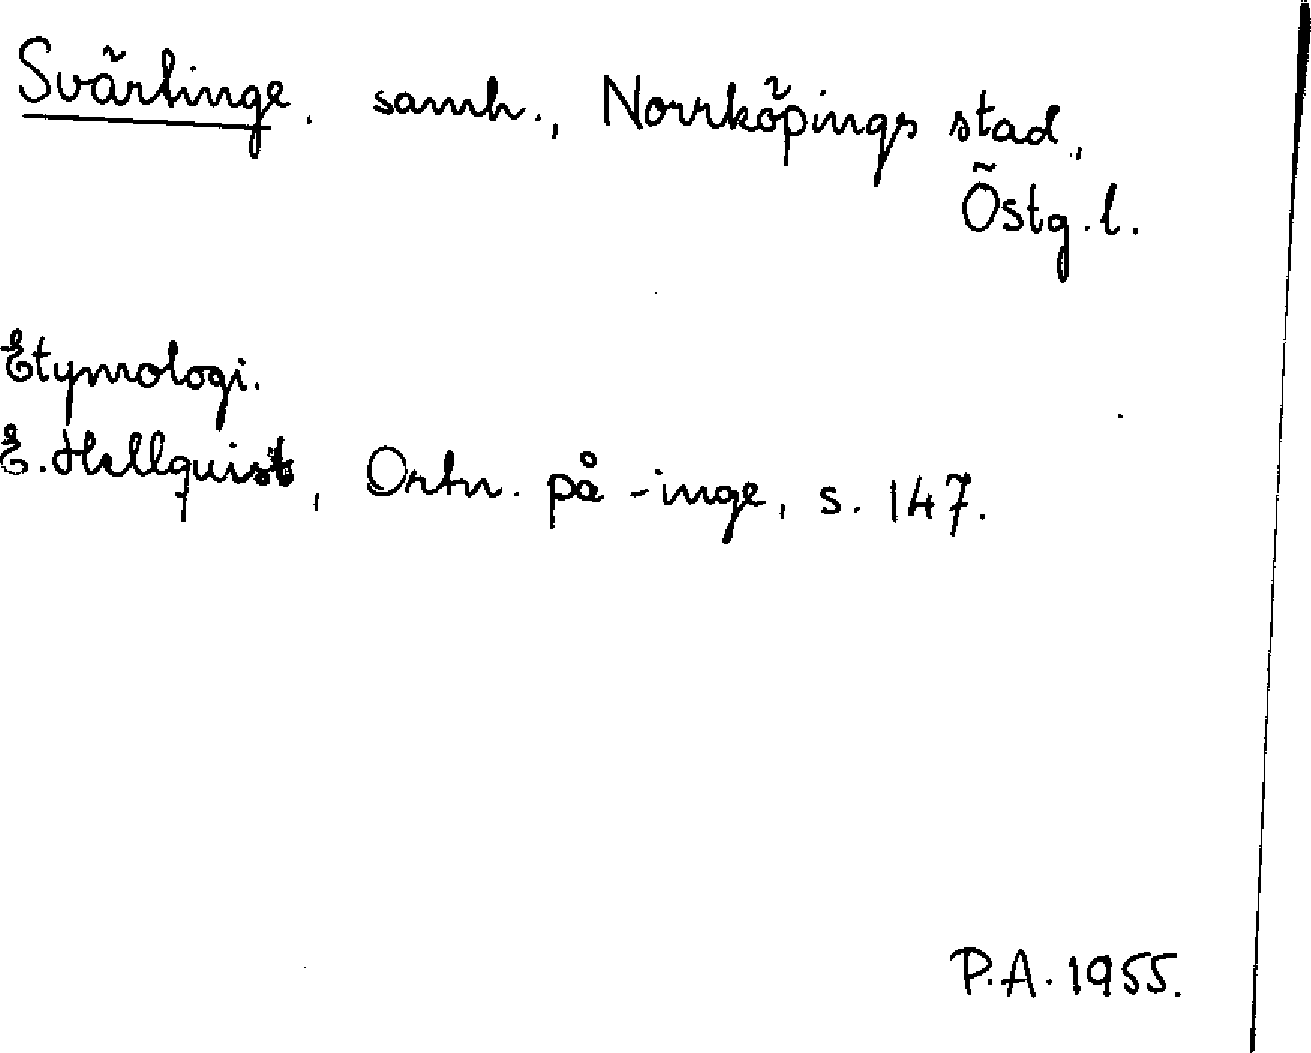 Svärtinge, samh., Norrköpings stad,
Östg.l.
Etymologi.
E. Hellquist, Ortn. på -inge, s. 147.
P.A. 1955.